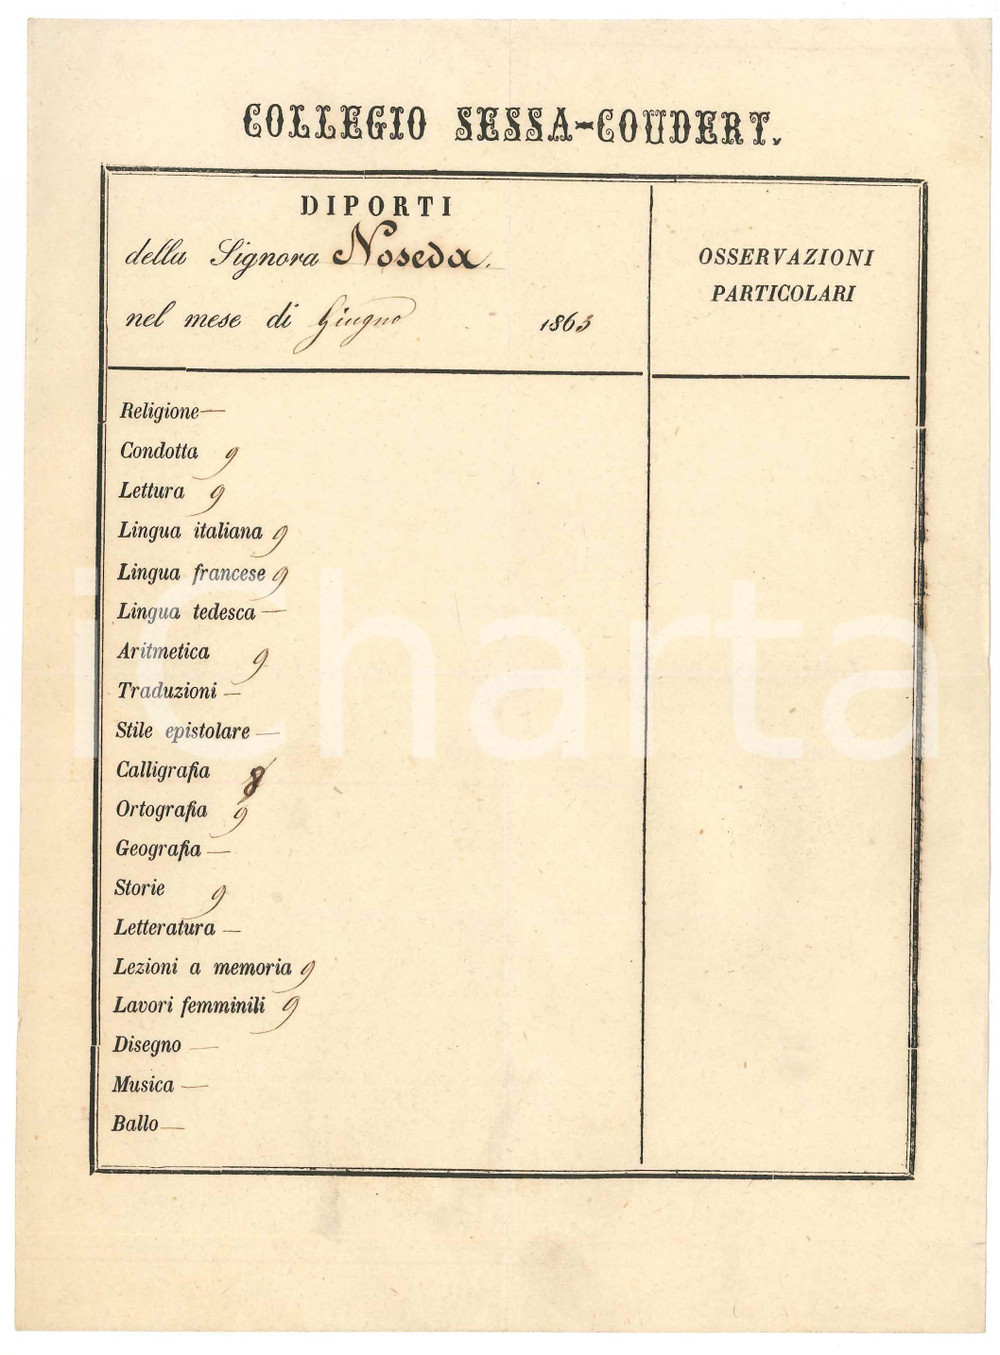 COLLEGIO SESSA-COUDERT.
DIPORTI
della Signora Noseda.
nel mese di Giugno 1863
OSSERVAZIONI
PARTICOLARI
Religione —
Condotta 9
Lettura 9
Lingua italiana 9
Lingua francese 9
Lingua tedesca —
Aritmetica 9
Traduzioni —
Stile epistolare —
Calligrafia 8
Ortografia 9
Geografia —
Storie 9
Letteratura —
Lezioni a memoria 9
Lavori femminili 9
Disegno —
Musica —
Ballo —
iCharta